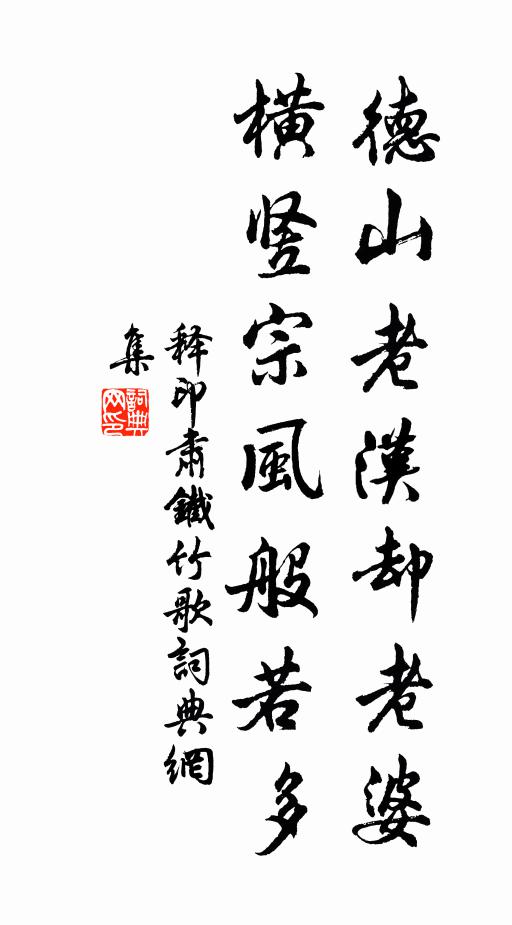 德山老漢却老婆
橫竖宗風般若多
释印肅鐵竹歌詞典網
集
詞典
网印